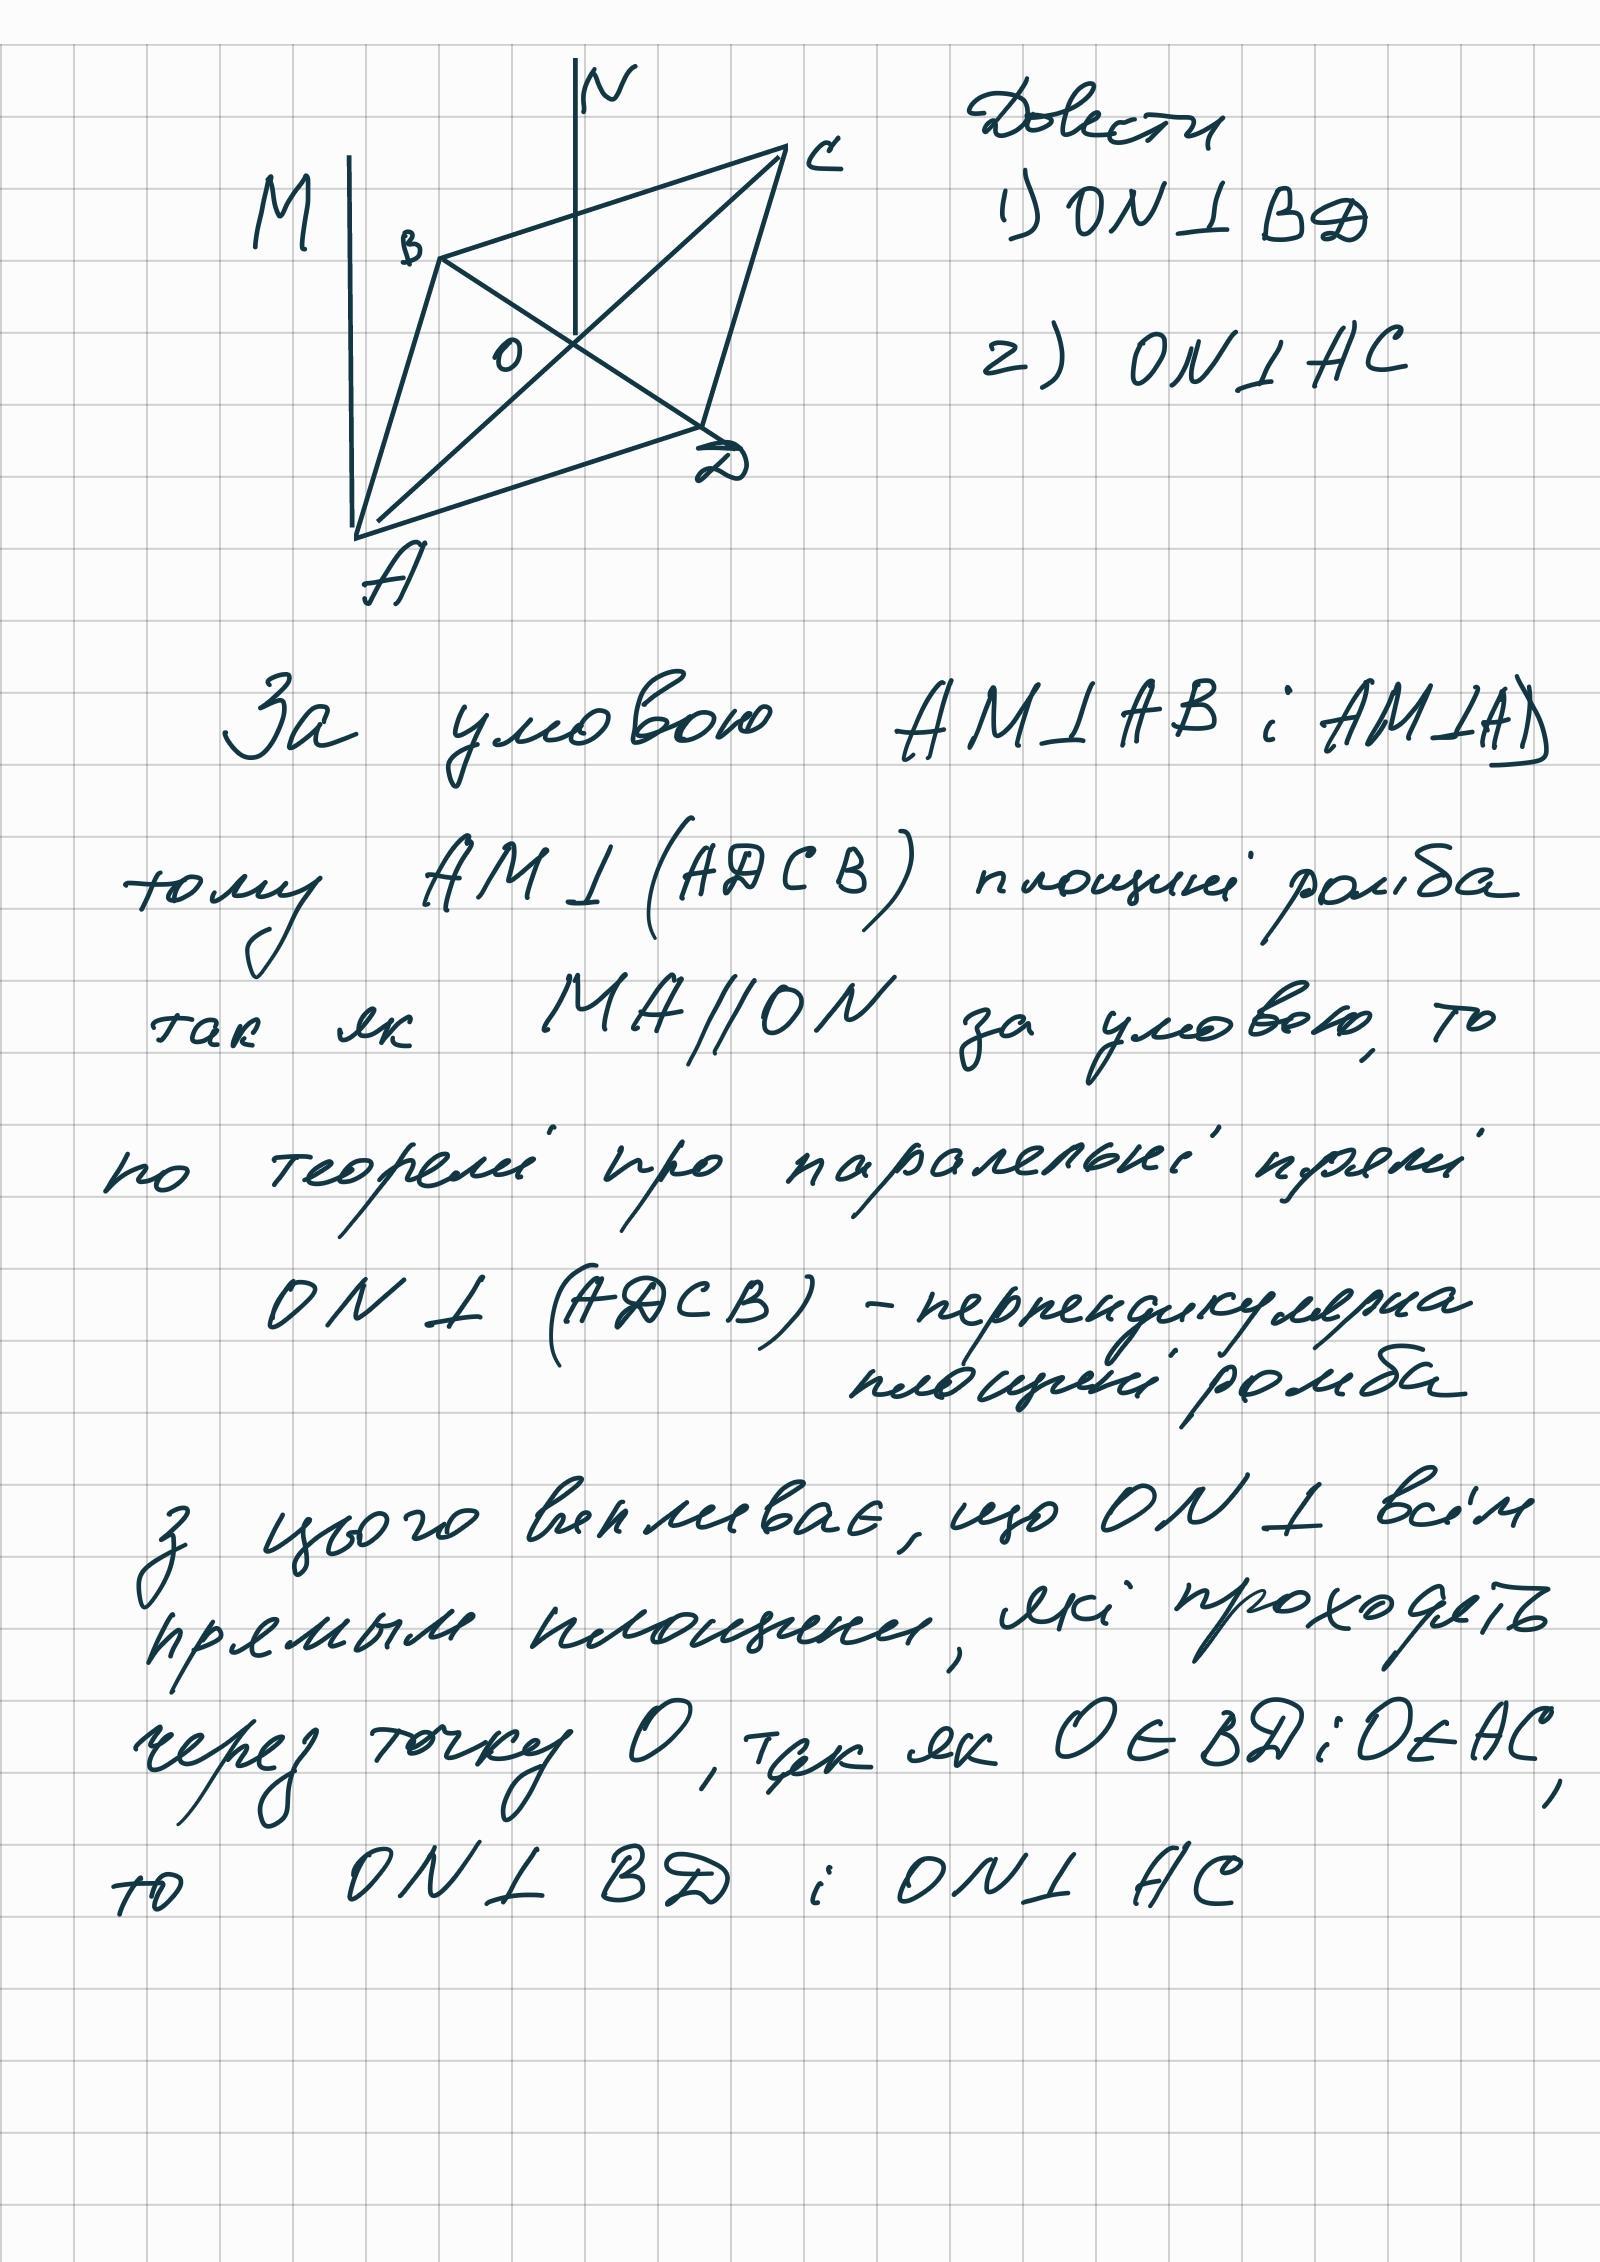 N
C
M
B
O
Д
A
Довести
1) ON ⊥ BД
2) ON ⊥ AC
За умовою AM ⊥ AB і AM ⊥ AD
тому AM ⊥ (AДCB) площині ромба
так як MA // ON за умовою, то
по теоремі про паралельні прямі
ON ⊥ (AДCB) - перпендикулярна
площині ромба
з цього випливає, що ON ⊥ всім
прямым площини, які проходять
через точку O, так як O ∈ BД і O ∈ AC,
то ON ⊥ BД і ON ⊥ AC